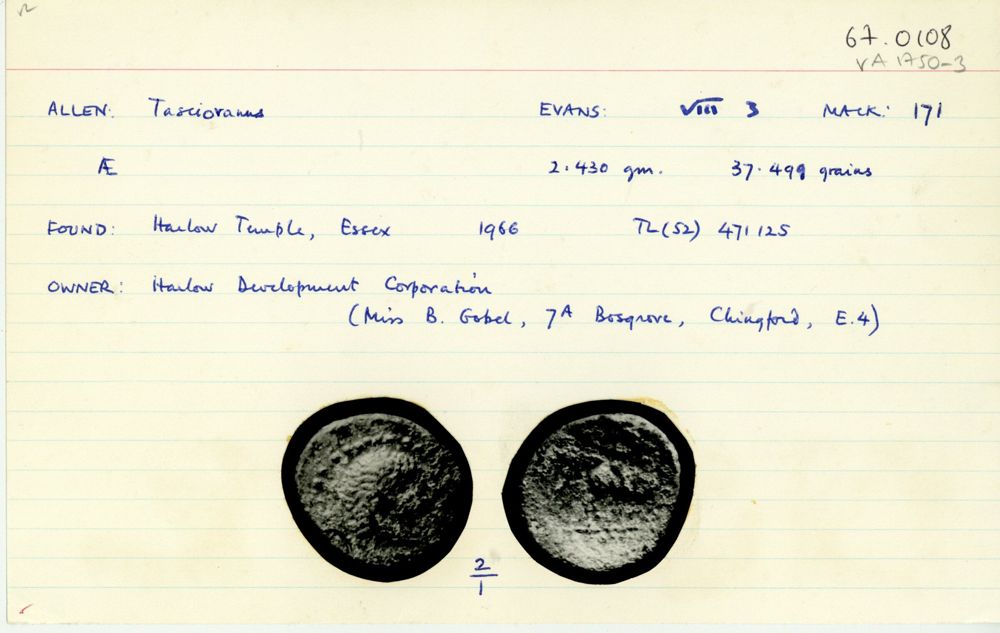 67.0108
VA 1750-3
ALLEN: Tasciovanus EVANS: VIII 3 MACK: 171
Æ 2.430 gm. 37.499 grains
FOUND: Harlow Temple, Essex 1966 TL(52) 471125
OWNER: Harlow Development Corporation
(Miss B. Gobel, 7A Bosgrove, Chingford, E.4)
2
1